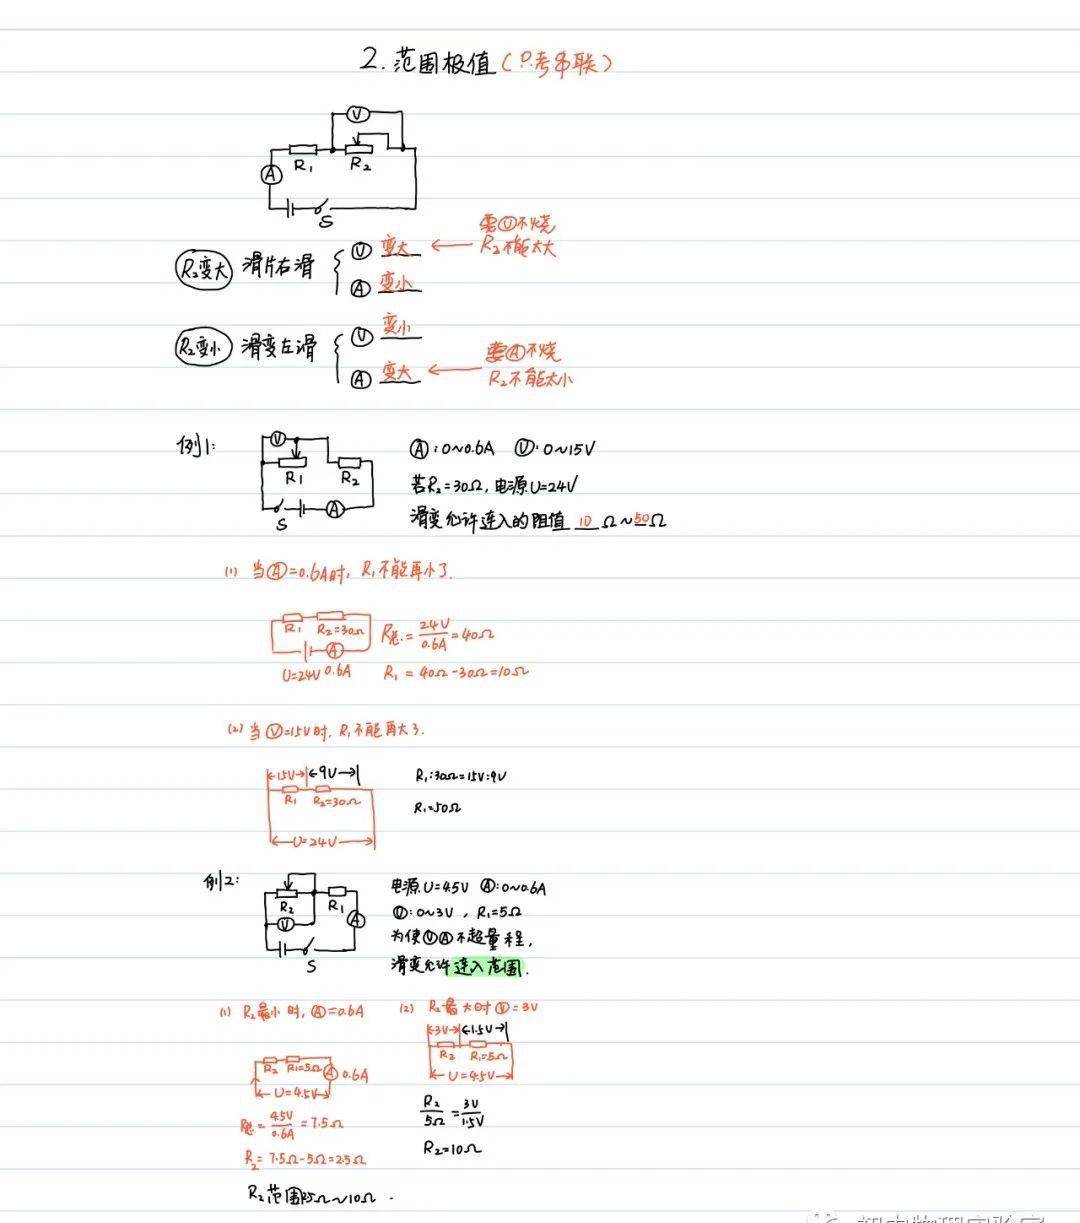 2.范围极值(只考串联)
V
A R₁ R₂
S
要Ⓥ不烧
R₂变大 滑片右滑 { Ⓥ 变大 ← R₂不能太大
Ⓐ 变小
R₂变小 滑变左滑 { Ⓥ 变小
要Ⓐ不烧
Ⓐ 变大 ← R₂不能太小
例1:
V
R₁ R₂
S A
Ⓐ:0~0.6A Ⓥ:0~15V
若R₂=30Ω,电源U=24V
滑变允许连入的阻值 10 Ω~50Ω
(1) 当Ⓐ=0.6A时, R₁不能再小了.
R₁ R₂=30Ω
A
U=24V 0.6A
R总=24V/0.6A=40Ω
R₁=40Ω-30Ω=10Ω
(2) 当Ⓥ=15V时, R₁不能再大了.
←15V→←9V→
R₁ R₂=30Ω
←U=24V→
R₁:30Ω=15V:9V
R₁=50Ω
例2:
R₂ R₁
V A
S
电源U=4.5V Ⓐ:0~0.6A
Ⓥ:0~3V , R₁=5Ω
为使ⓋⒶ不超量程,
滑变允许连入范围.
(1) R₂最小时, Ⓐ=0.6A
R₂ R₁=5Ω A 0.6A
←U=4.5V→
R总=4.5V/0.6A=7.5Ω
R₂=7.5Ω-5Ω=2.5Ω
(2) R₂最大时Ⓥ=3V
←3V→←1.5V→
R₂ R₁=5Ω
←U=4.5V→
R₂/5Ω=3V/1.5V
R₂=10Ω
R₂范围2.5Ω~10Ω.